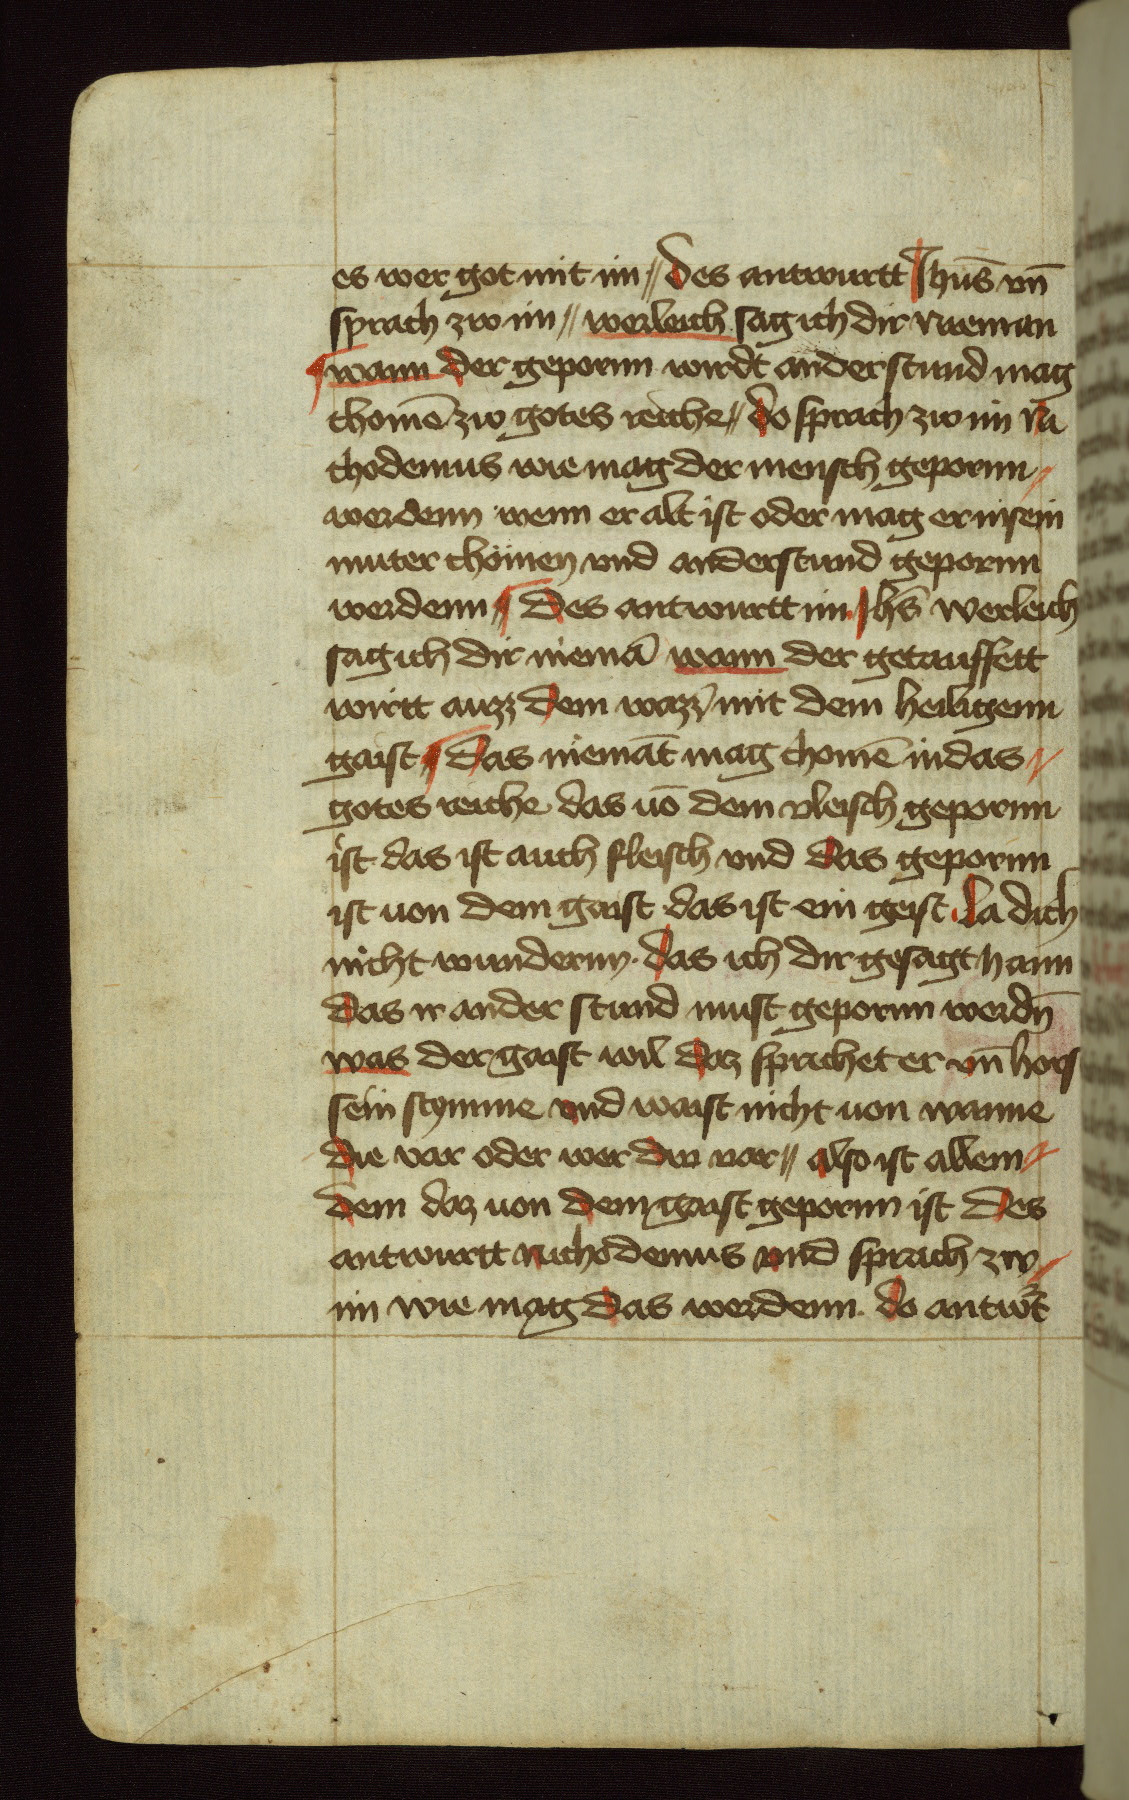 es wer got mit im // des antwurtt Jhus̄ vn̄
sprach zw im // werleich sag ich dir nieman
wann der gepornn wirdt anderstund mag
chomē zw gotes reiche // do sprach zw im ni
chodemus wie mag der mensch gepornn //
werdenn wenn er alt ist oder mag er in sein
muter chömen vnd anderstund gepornn
werdenn des antwurtt im Jhs̄ werleich
sag ich dir niemā wann der getauffett
wirtt auzz dem wazz' mit dem heiligenn
gaist das niemāt mag chomē in das //
gotes reiche das uō dem vleisch gepornn
ist das ist auch fleisch vnd das gepornn
ist uon dem gaist das ist ein geist. la dich
nicht wundernn. das ich dir gesagt hann
das ir ander stund must geporun werdn̄
was der gaist wil daz sprichet er vn̄ hors
sein stymme vnd waist nicht uon wanne
die var oder wer din var // also ist allem
dem daz uon dem gaist geporun ist des
antwurtt nichodemus vnd sprach zw
im wie mag das werdenn. do antwrt